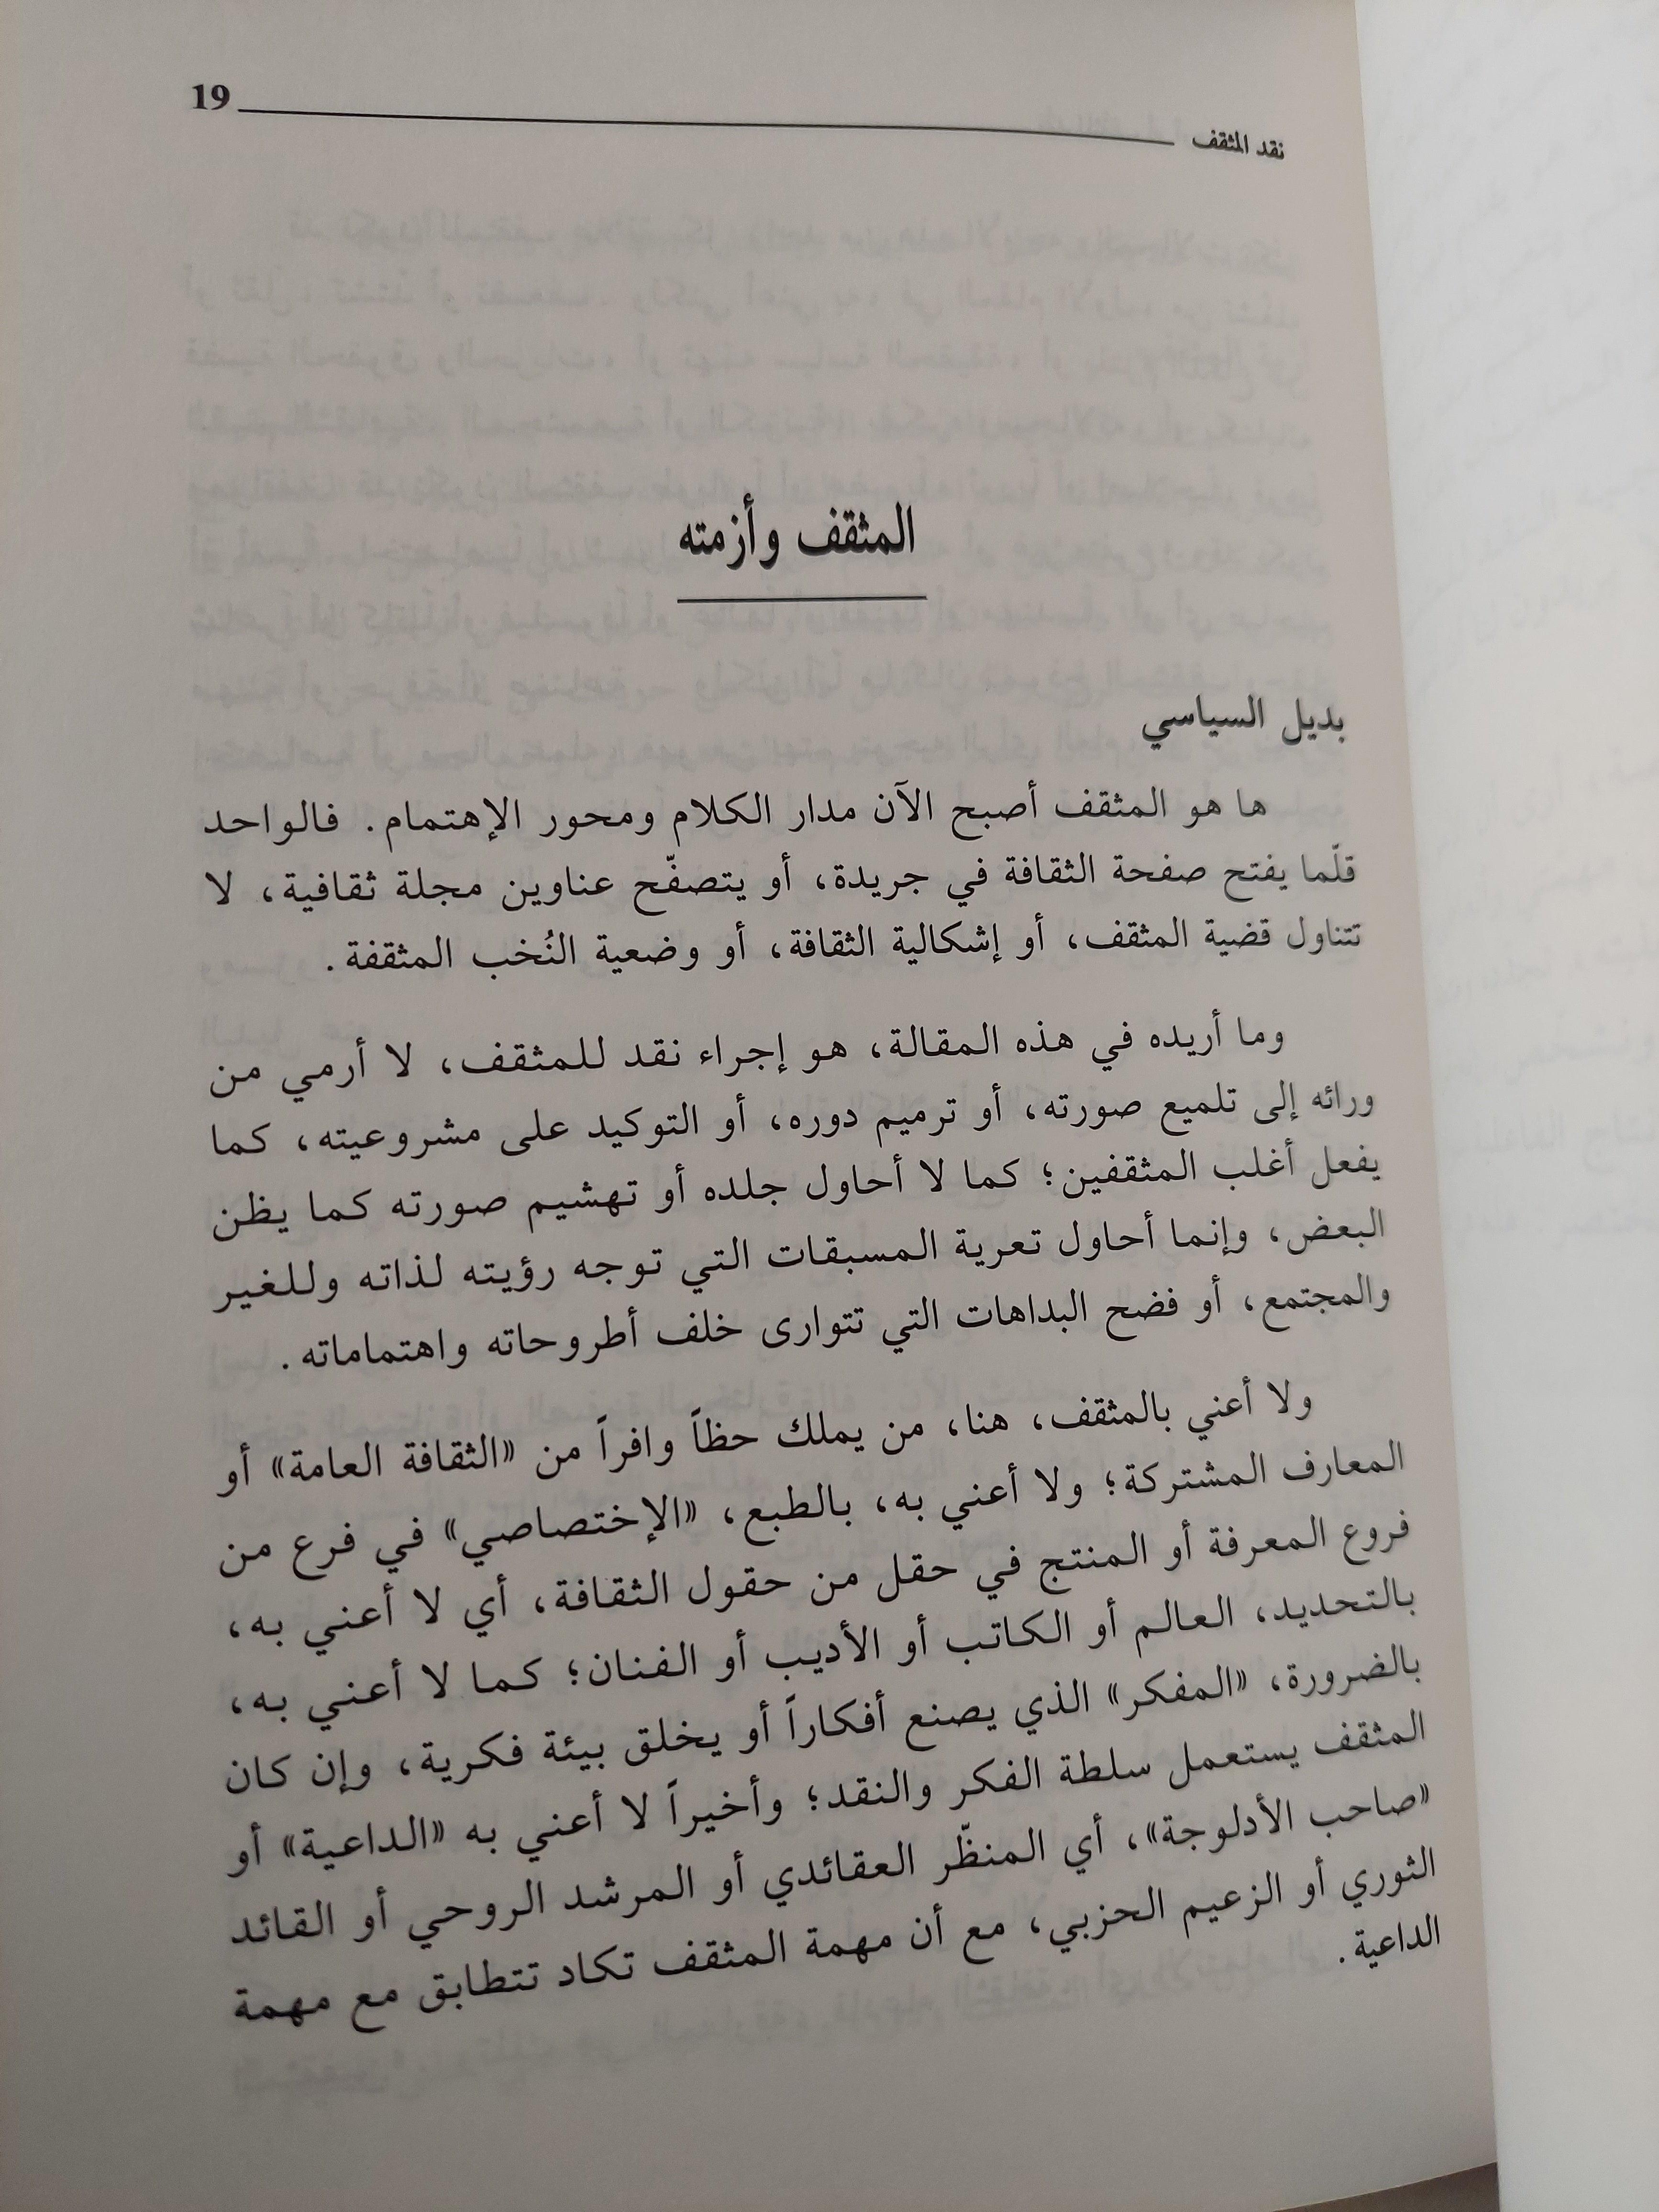 نقد المثقف 19
المثقف وأزمته
بديل السياسي
ها هو المثقف أصبح الآن مدار الكلام ومحور الإهتمام. فالواحد
قلّما يفتح صفحة الثقافة في جريدة، أو يتصفّح عناوين مجلة ثقافية، لا
تتناول قضية المثقف، أو إشكالية الثقافة، أو وضعية النُخب المثقفة.
وما أريده في هذه المقالة، هو إجراء نقد للمثقف، لا أرمي من
ورائه إلى تلميع صورته، أو ترميم دوره، أو التوكيد على مشروعيته، كما
يفعل أغلب المثقفين؛ كما لا أحاول جلده أو تهشيم صورته كما يظن
البعض، وإنما أحاول تعرية المسبقات التي توجه رؤيته لذاته وللغير
والمجتمع، أو فضح البداهات التي تتوارى خلف أطروحاته واهتماماته.
ولا أعني بالمثقف، هنا، من يملك حظاً وافراً من «الثقافة العامة» أو
المعارف المشتركة؛ ولا أعني به، بالطبع، «الإختصاصي» في فرع من
فروع المعرفة أو المنتج في حقل من حقول الثقافة، أي لا أعني به،
بالتحديد، العالم أو الكاتب أو الأديب أو الفنان؛ كما لا أعني به،
بالضرورة، «المفكر» الذي يصنع أفكاراً أو يخلق بيئة فكرية، وإن كان
المثقف يستعمل سلطة الفكر والنقد؛ وأخيراً لا أعني به «الداعية» أو
«صاحب الأدلوجة»، أي المنظّر العقائدي أو المرشد الروحي أو القائد
الثوري أو الزعيم الحزبي، مع أن مهمة المثقف تكاد تتطابق مع مهمة
الداعية.